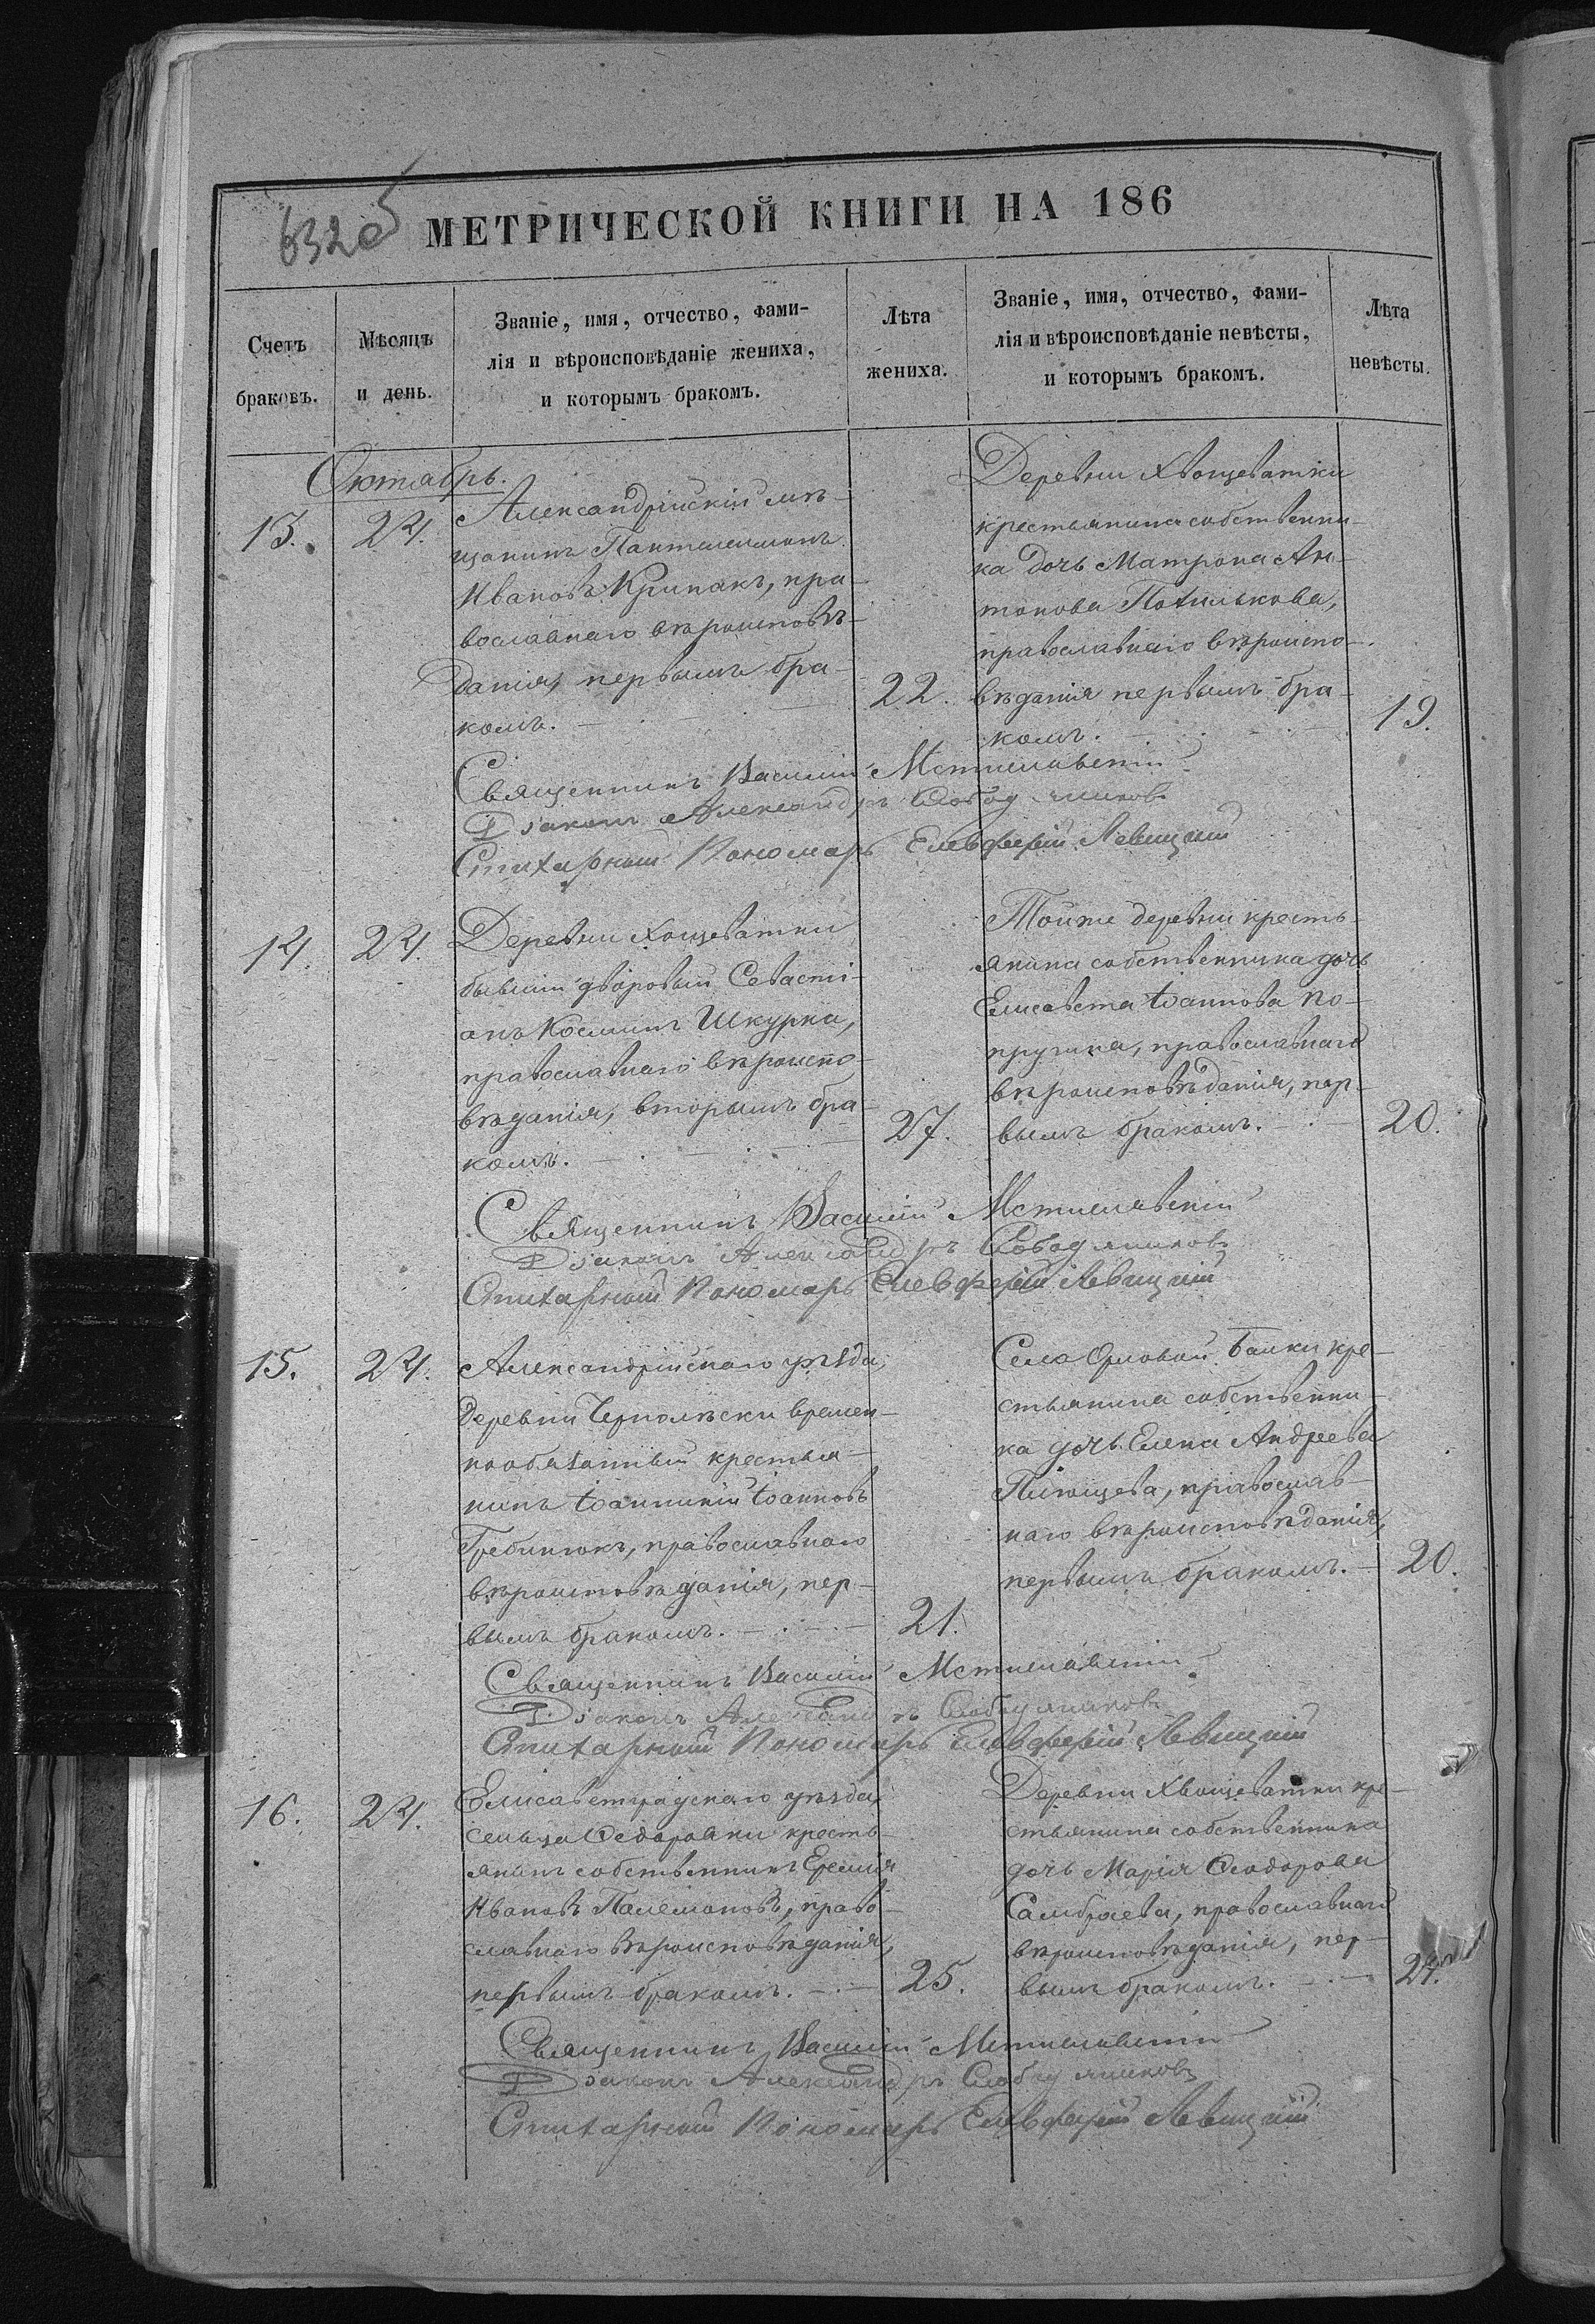 632об
МЕТРИЧЕСКОЙ КНИГИ НА 186
Счетъ
браковъ.
Мѣсяцъ
и день.
Званіе, имя, отчество, фами-
лія и вѣроисповѣданіе жениха,
и которымъ бракомъ.
Лѣта
жениха.
Званіе, имя, отчество, фами-
лія и вѣроисповѣданіе невѣсты,
и которымъ бракомъ.
Лѣта
невѣсты.
Октябрь.
13.
24.
Александрійскій мѣ-
щанинъ Пантелеимонъ
Ивановъ Крипакъ, пра-
вославнаго вѣроисповѣ-
данія, первымъ бра-
комъ.
22.
Деревни Хвощеватки
крестьянина собственни-
ка дочь Матрона Ан-
тонова Потилькова,
православнаго вѣроиспо-
вѣданія первымъ бра-
комъ.
19.
Священникъ Василій Мстиславскій
Діаконъ Александръ
Стихарный Пономарь Елевферій Левицкій
14.
24.
Деревни Хощеватки
бывшій дворовый Севасті-
анъ Косминъ Шкурка,
православнаго вѣроиспо-
вѣданія, вторымъ бра-
комъ.
27.
Тойже деревни кресть-
янина собственника дочь
Елисавета Іоаннова По-
пружна, православнаго
вѣроисповѣданія, пер-
вымъ бракомъ.
20.
Священникъ Василій Мстиславскій
Діаконъ Александръ
Стихарный Пономарь Елевферій Левицкій
15.
24.
Александрійскаго уѣзда,
деревни Чернолѣски времен-
нообязанный крестья-
нинъ Іоанникій Іоанновъ
Гребинюкъ, православнаго
вѣроисповѣданія, пер-
вымъ бракомъ.
21.
Села Орловой Балки кре-
стьянина собственни-
ка дочь Елена Андреева
православ-
наго вѣроисповѣданія,
первымъ бракомъ.
20.
Священникъ Василій Мстиславскій
Діаконъ Александръ
Стихарный Пономарь Елевферій Левицкій
16.
24.
Елисаветградскаго уѣзда,
сельца Федоровки кресть-
янинъ собственникъ Еремія
Ивановъ Палемановъ, право-
славнаго вѣроисповѣданія,
первымъ бракомъ.
25.
Деревни Хвощеватки кре-
стьянина собственника
дочь Марія Феодорова
православнаго
вѣроисповѣданія, пер-
вымъ бракомъ.
Священникъ Василій Мстиславскій
Діаконъ Александръ
Стихарный Пономарь Елевферій Левицкій